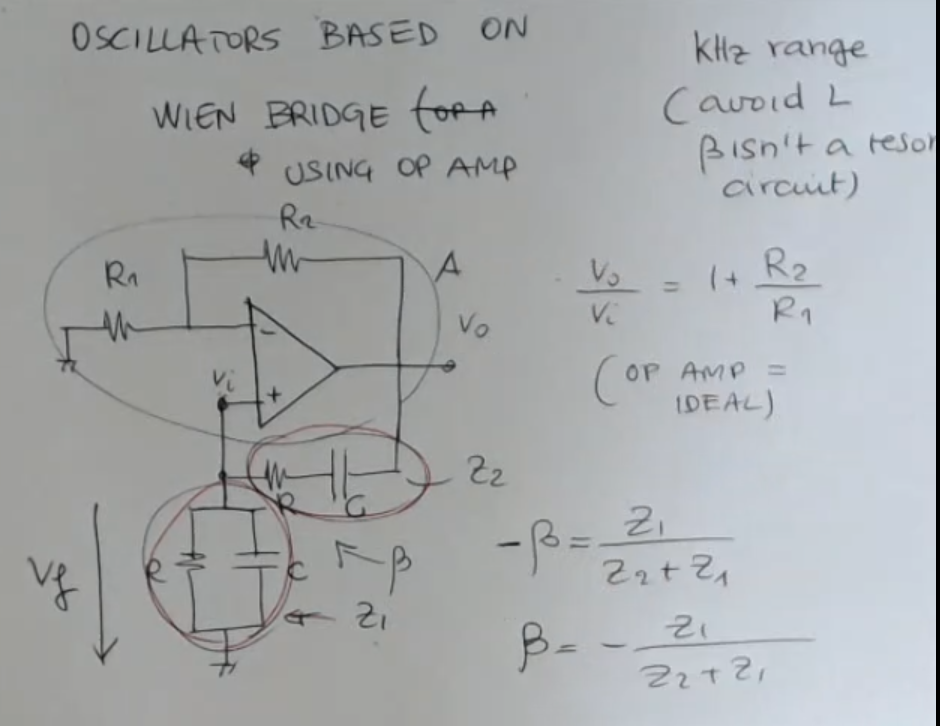 OSCILLATORS BASED ON
WIEN BRIDGE (OP A
USING OP AMP
kHz range
(avoid L
β isn't a reson
circuit)
R2
R1
A
Vo
Vi
-
+
Vo/Vi = 1 + R2/R1
(OP AMP =
IDEAL)
R C
Z2
β
R C
Z1
Vf
-β = Z1/(Z2 + Z1)
β = - Z1/(Z2 + Z1)